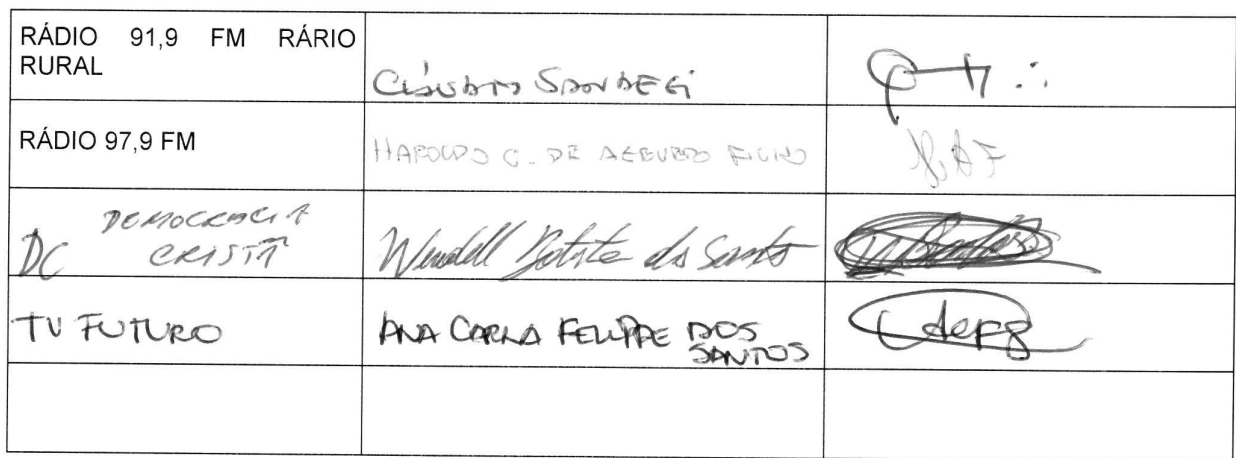 RÁDIO 91,9 FM RÁRIO
RURAL
CLÁUDIO SANDEGI
RÁDIO 97,9 FM
HAROLDO G. DE AZEVEDO FILHO
HAF
DC DEMOCRACIA
CRISTÃ
Wendell Batista dos Santos
TV FUTURO
ANA CARLA FELIPPE DOS
SANTOS